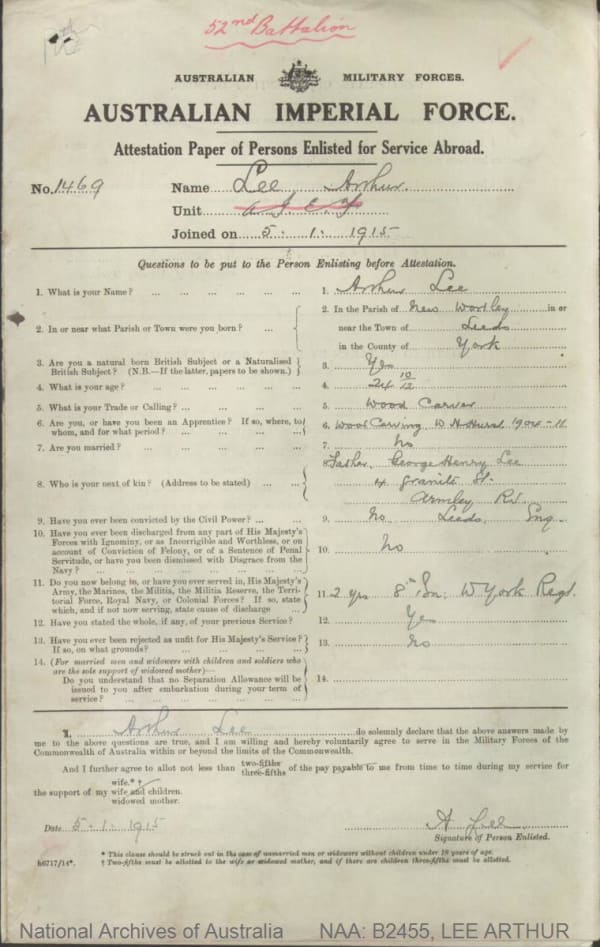 52nd Battalion
AUSTRALIAN MILITARY FORCES.
AUSTRALIAN IMPERIAL FORCE.
Attestation Paper of Persons Enlisted for Service Abroad.
No. 1469 Name Lee Arthur
Unit
Joined on 5. 1. 1915
Questions to be put to the Person Enlisting before Attestation.
1. What is your Name? ... 1. Arthur Lee
2. In or near what Parish or Town were you born? ... 2. In the Parish of New Wortley in or
near the Town of Leeds
in the County of York
3. Are you a natural born British Subject or a Naturalised
British Subject? (N.B.—If the latter, papers to be shown.) 3. Yes
4. What is your age? ... 4. 24 10/12
5. What is your Trade or Calling? ... 5. Wood Carver
6. Are you, or have you been an Apprentice? If so, where, to
whom, and for what period? ... 6. Wood Carving W H Hurst 1904-11
7. Are you married? ... 7. No
8. Who is your next of kin? (Address to be stated) ... 8. Father. George Henry Lee
4 Granite St.
Armley Rd
Leeds, Eng
9. Have you ever been convicted by the Civil Power? ... 9. No
10. Have you ever been discharged from any part of His Majesty's
Forces with Ignominy, or as Incorrigible and Worthless, or on
account of Conviction of Felony, or of a Sentence of Penal
Servitude, or have you been dismissed with Disgrace from the
Navy? ... 10. No
11. Do you now belong to, or have you ever served in, His Majesty's
Army, the Marines, the Militia, the Militia Reserve, the Terri-
torial Force, Royal Navy, or Colonial Forces? If so, state
which, and if not now serving, state cause of discharge ... 11. 2 yrs 8th Bn: W York Regt.
12. Have you stated the whole, if any, of your previous Service? 12. Yes
13. Have you ever been rejected as unfit for His Majesty's Service?
If so, on what grounds? ... 13. No
14. (For married men and widowers with children and soldiers who
are the sole support of widowed mother)—
Do you understand that no Separation Allowance will be
issued to you after embarkation during your term of
service? ... 14.
I, Arthur Lee do solemnly declare that the above answers made by
me to the above questions are true, and I am willing and hereby voluntarily agree to serve in the Military Forces of the
Commonwealth of Australia within or beyond the limits of the Commonwealth.
And I further agree to allot not less than two-fifths three-fifths of the pay payable to me from time to time during my service for
wife.* †
the support of my wife and children.
widowed mother.
Date 5.1.1915 A Lee
Signature of Person Enlisted.
* This clause should be struck out in the case of unmarried men or widowers without children under 18 years of age.
b6717/14*. † Two-fifths must be allotted to the wife or widowed mother, and if there are children three-fifths must be allotted.
National Archives of Australia NAA: B2455, LEE ARTHUR